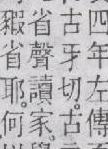 四年左傳
古牙切。古
省聲讀家、
豭省耶。何